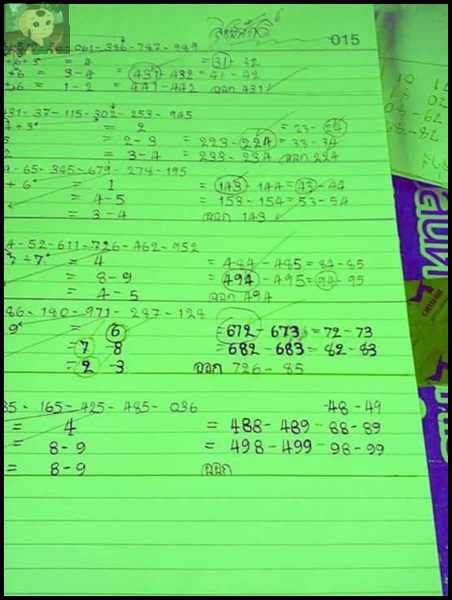 015
36-061-326-787-989
+6+5 = 4 = 31-32
+6 = 3-4 = 431-432 = 41-42
+6 = 1-2 = 441-442 ออก 431
431-37-115-302-253-945
4+3 = 2 = 23-24
5 = 2-3 = 223-224 = 33-34
2 = 3-4 = 233-234 ออก 224
9-65-345-679-278-195
+6 = 1 = 143-144 = 43-44
= 4-5 = 153-154 = 53-54
= 3-4 ออก 143
4-52-611-726-462-952
7+7 = 4 = 484-485 = 84-85
= 8-9 = 494-495 = 94-95
= 4-5 ออก 494
86-180-971-287-128
9 = 6 = 672-673 = 72-73
= 7-8 = 682-683 = 82-83
= 2-3 ออก 726-85
35-165-425-485-036 -48-49
= 4 = 488-489-88-89
= 8-9 = 498-499-98-99
= 8-9 ออก